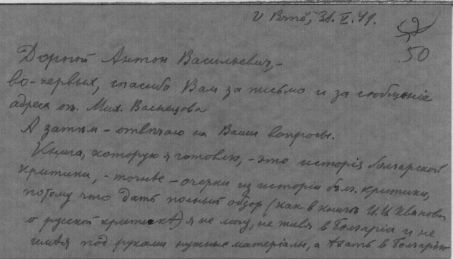 V Brně, 31. V. 49.
50
Дорогой Антон Васильевич, –
во-первых, спасибо Вам за письмо и за сообщение
адреса от. Мих. Васнецова
А затем – отвечаю на Ваши вопросы.
Книга, которую я готовлю, – это исторія болгарской
критики, – точнее – очерки из исторіи болг. критики,
потому что дать полный обзор (как в книге
о русской критике) я не могу, не живя в Болгаріи и не
имея под руками нужные матеріалы, а ехать в Болгарію